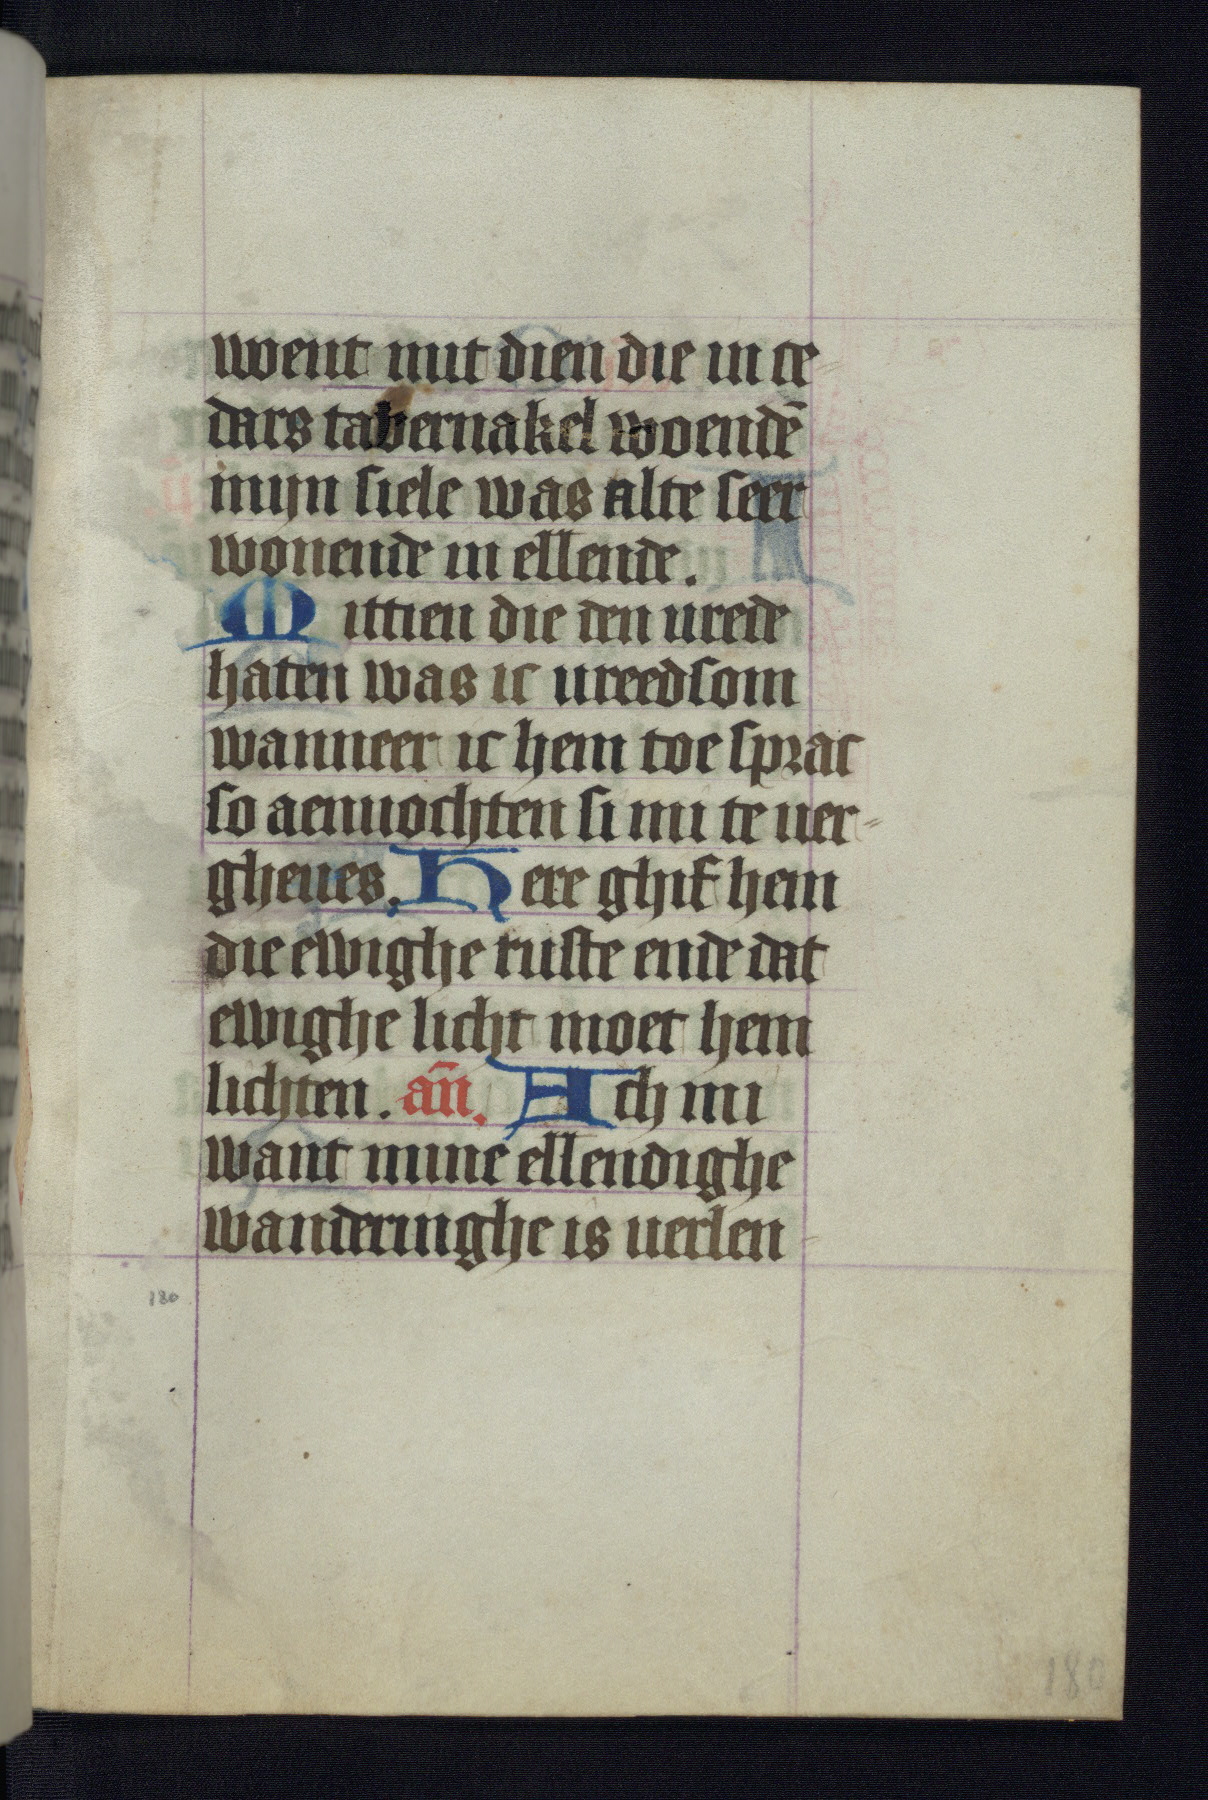 woent mit dien die in ce
dars tabernakel woendē
mijn siele was alte seer
wonende in ellende.
Mittien die den urede
haten was ic ureedsom
wanneer ic hem toe sprac
so aenuochten si mi te uer=
gheues. Here ghif hem
die ewighe ruste ende dat
ewighe licht moet hem
lichten. an̄. Ach mi
want mine ellendighe
wanderinghe is uerlen
180
180